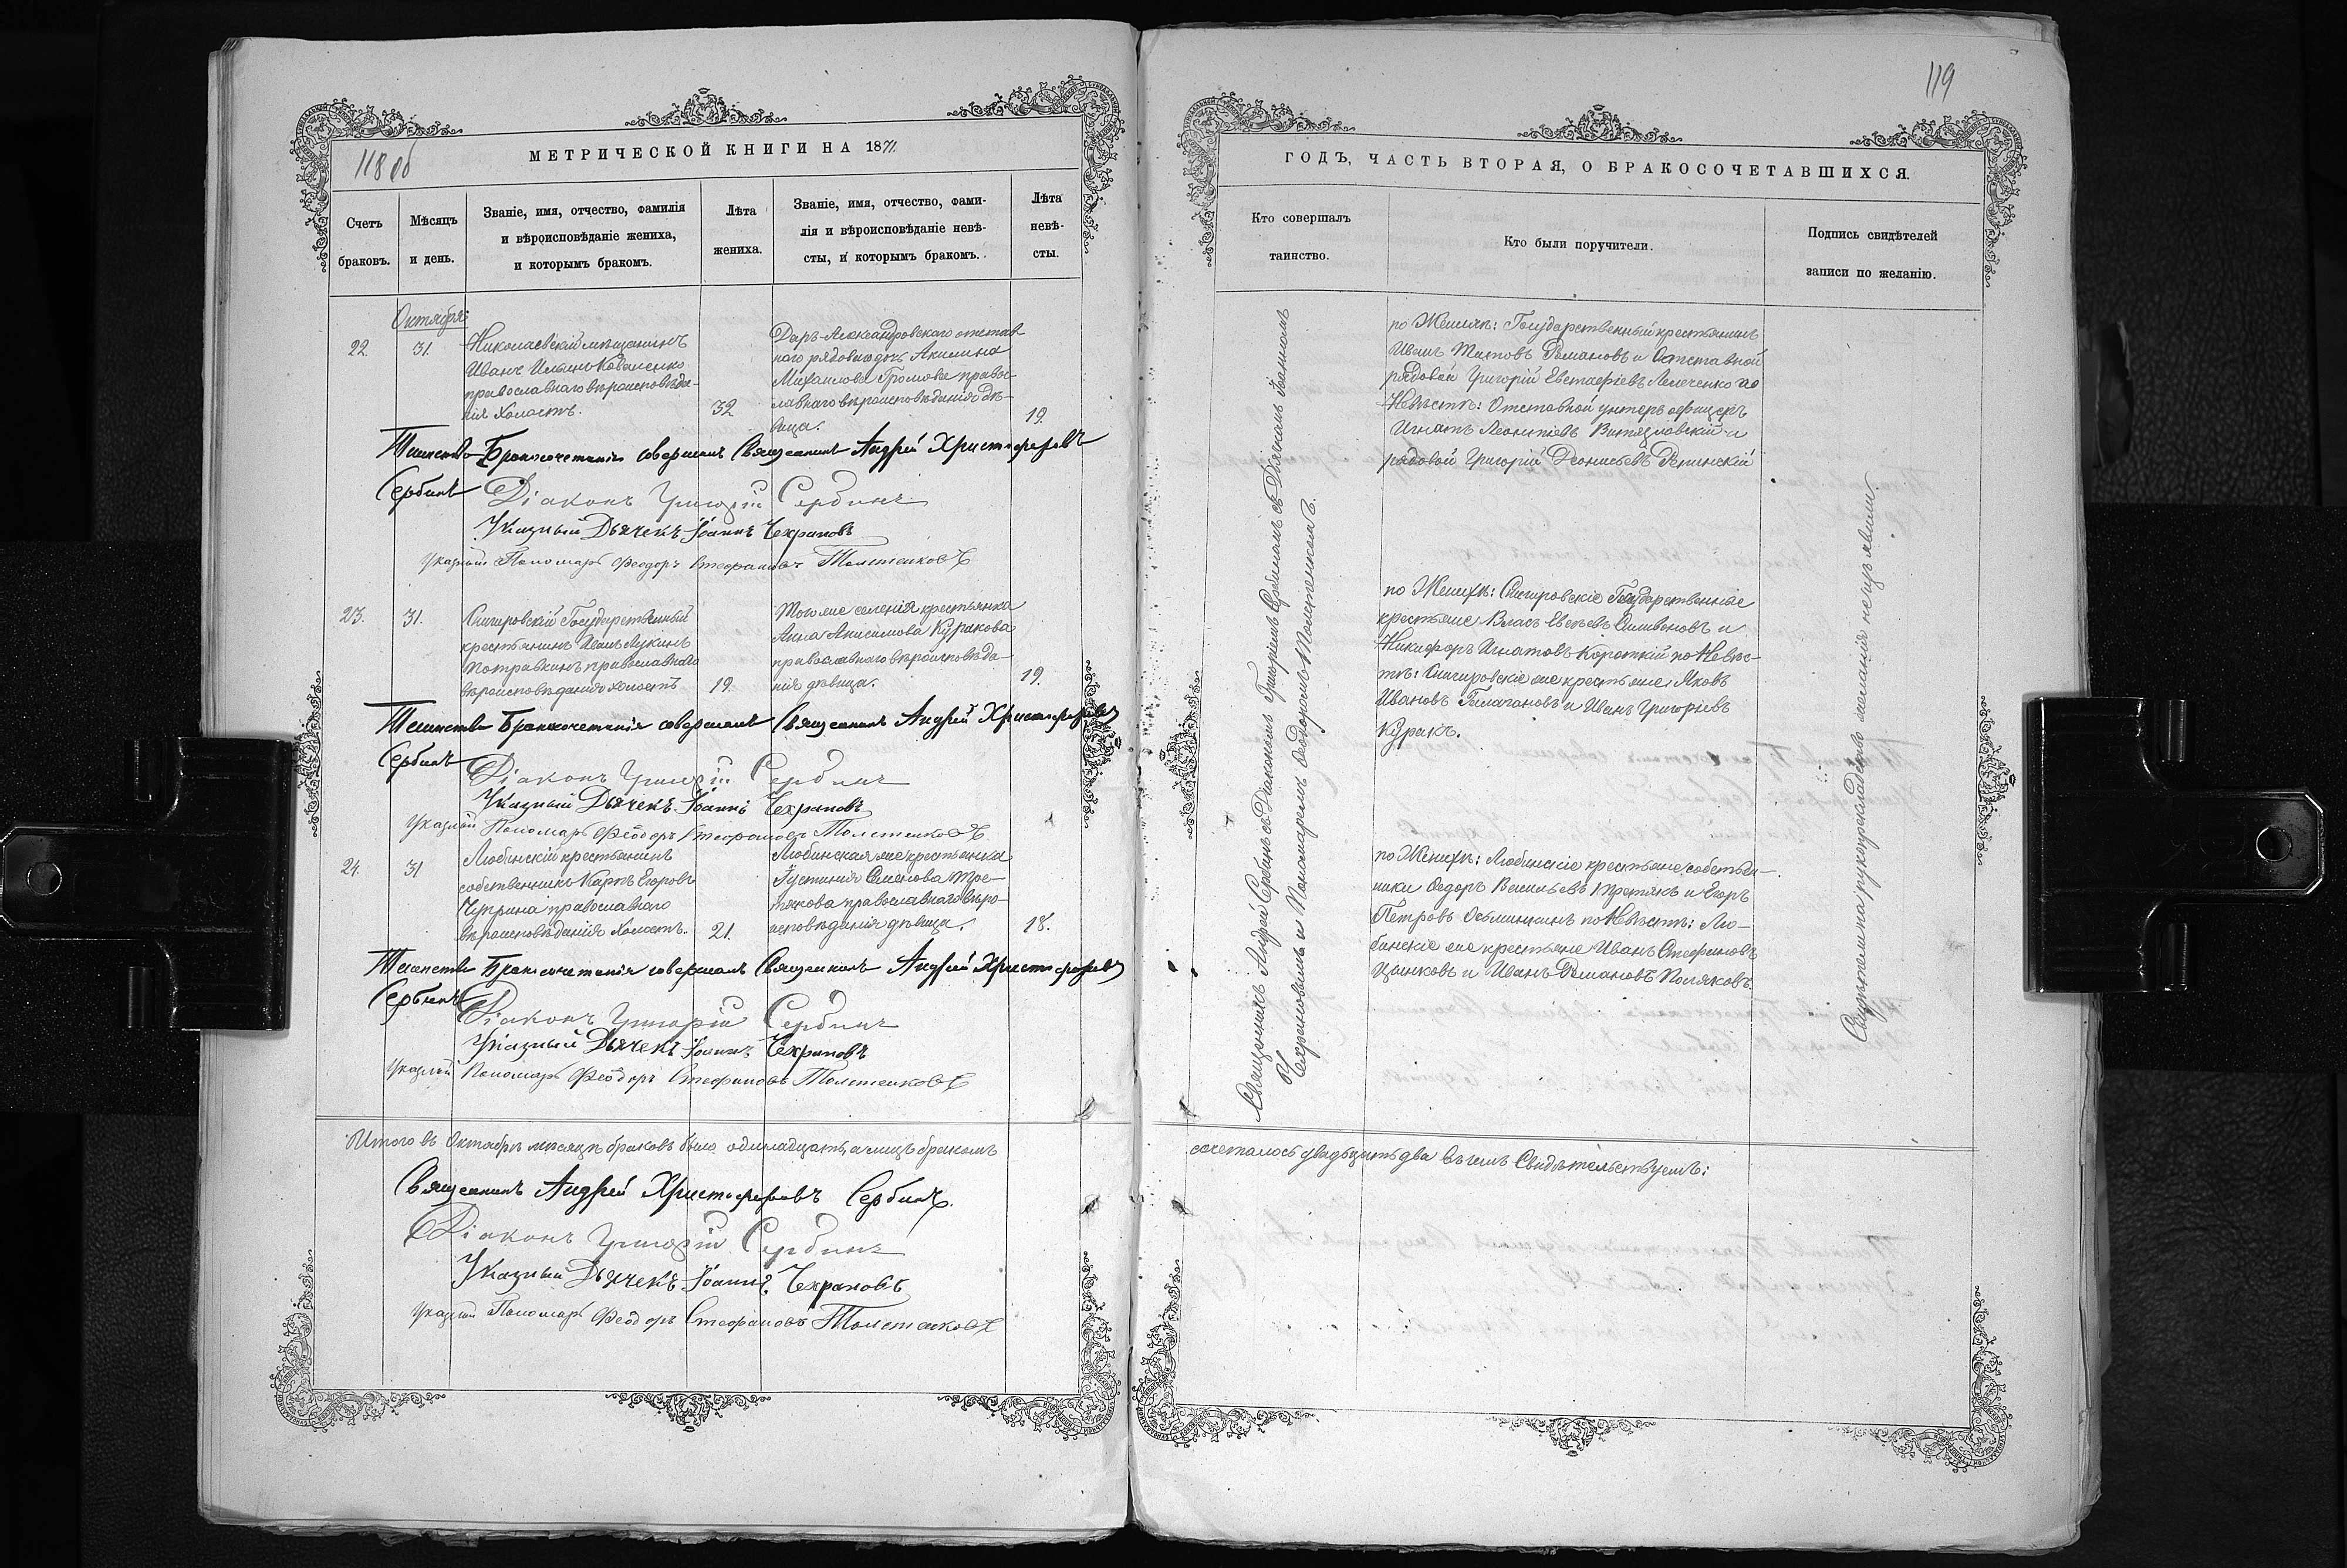 118 об
МЕТРИЧЕСКОЙ КНИГИ НА 1871.
Счетъ
браковъ.
Мѣсяцъ
и день.
Званіе, имя, отчество, фамилія
и вѣроисповѣданіе жениха,
и которымъ бракомъ.
Лѣта
жениха.
Званіе, имя, отчество, фами-
лія и вѣроисповѣданіе невѣ-
сты, и которымъ бракомъ.
Лѣта
невѣ-
сты.
Октября
22.
31.
Николаевскій мѣщанинъ
Иванъ Ильинъ Коваленко
православнаго вѣроисповѣда-
нія холостъ.
32
Даръ-Александровскаго отстав
наго рядоваго дочь Акилина
Михаилова Громова правос-
лавнаго вѣроисповѣданія дѣ-
вица.
19.
Таинство Бракосочетанія совершалъ Священникъ Андрей Христофоровъ
Сербинъ
Діаконъ Григорій Сербинъ
Указный Дьячекъ Іоаннъ Чехрановъ
Указный Пономарь Феодоръ Стефановъ
23.
31.
Снигировскій Государственный
крестьянинъ Иванъ Лукинъ
православнаго
вѣроисповѣданія холостъ
19.
Того же селенія крестьянка
Анна Анисимова Куракова
православнаго вѣроисповѣда-
нія дѣвица.
19.
Таинство Бракосочетанія совершалъ Священникъ Андрей Христофоровъ
Сербинъ
Діаконъ Григорій Сербинъ
Указный Дьячекъ Іоаннъ Чехрановъ
Указный Пономарь Феодоръ Стефановъ
24.
31
Любинскій крестьянинъ
собственникъ Карпъ Егоровъ
Чуприна православнаго
вѣроисповѣданія холостъ.
21.
Любинская же крестьянка
Іустинія Семенова Тре-
тякова православнаго вѣро-
исповѣданія дѣвица.
18.
Таинство Бракосочетанія совершалъ Священникъ Андрей Христофоровъ
Сербинъ
Діаконъ Григорій Сербинъ
Указный Дьячекъ Іоаннъ Чехрановъ
Указный Пономарь Феодоръ Стефановъ
Итого въ Октябрѣ мѣсяцѣ браковъ было одинадцать, а лицъ бракомъ
Священникъ Андрей Христофоровъ Сербинъ.
Діаконъ Григорій Сербинъ
Указный Дьячекъ Іоаннъ Чехрановъ
Указный Пономарь Феодоръ Стефановъ
119
ГОДЪ, ЧАСТЬ ВТОРАЯ, О БРАКОСОЧЕТАВШИХСЯ.
Кто совершалъ
таинство.
Кто были поручители.
Подпись свидѣтелей
записи по желанію.
Священникъ Андрей Сербинъ съ Діакономъ Григоріемъ Сербинымъ съ Дьячкомъ Іоанномъ
Чехрановымъ и Пономаремъ Феодоромъ
по Женихѣ: Государственный крестьянинъ
Иванъ Титовъ Романовъ и Отставной
рядовой Григорій Евстафіевъ по
Невѣстѣ: Отставной унтеръ офицеръ
Игнатъ Леонтіевъ и
рядовой Григорій Деонисьевъ
по Женихѣ: Снигировскіе Государственные
крестьяне Власъ и
Никифоръ Игнатовъ Короткій по Невѣс-
тѣ: Снигировскіе же крестьяне: Яковъ
Ивановъ и Иванъ Григорьевъ
Куракъ.
по Женихѣ: Любинскіе крестьяне собствен-
ники Федоръ Васильевъ Третякъ и Егоръ
Петровъ по Невѣстѣ: Лю-
бинскіе же крестьяне Иванъ Стефановъ
и Иванъ Романовъ Поляковъ.
на рукоприкладство желанія не
сочеталось двадцать два въ чемъ Свидѣтельствуемъ: